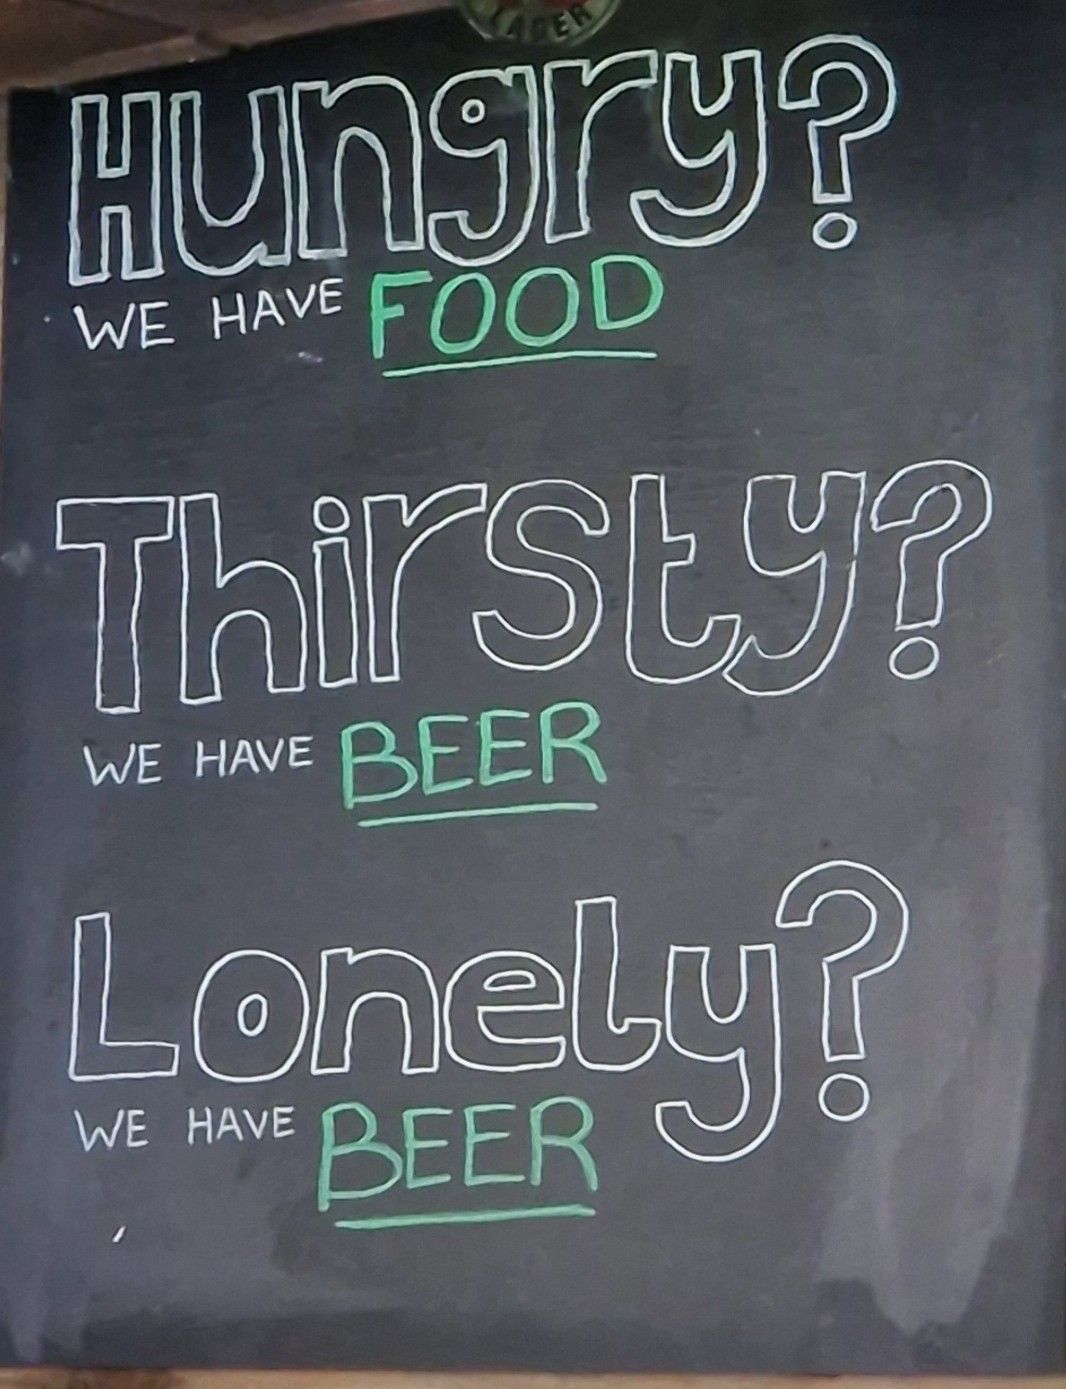 LAGER
Hungry?
WE HAVE FOOD
Thirsty?
WE HAVE BEER
Lonely?
WE HAVE BEER